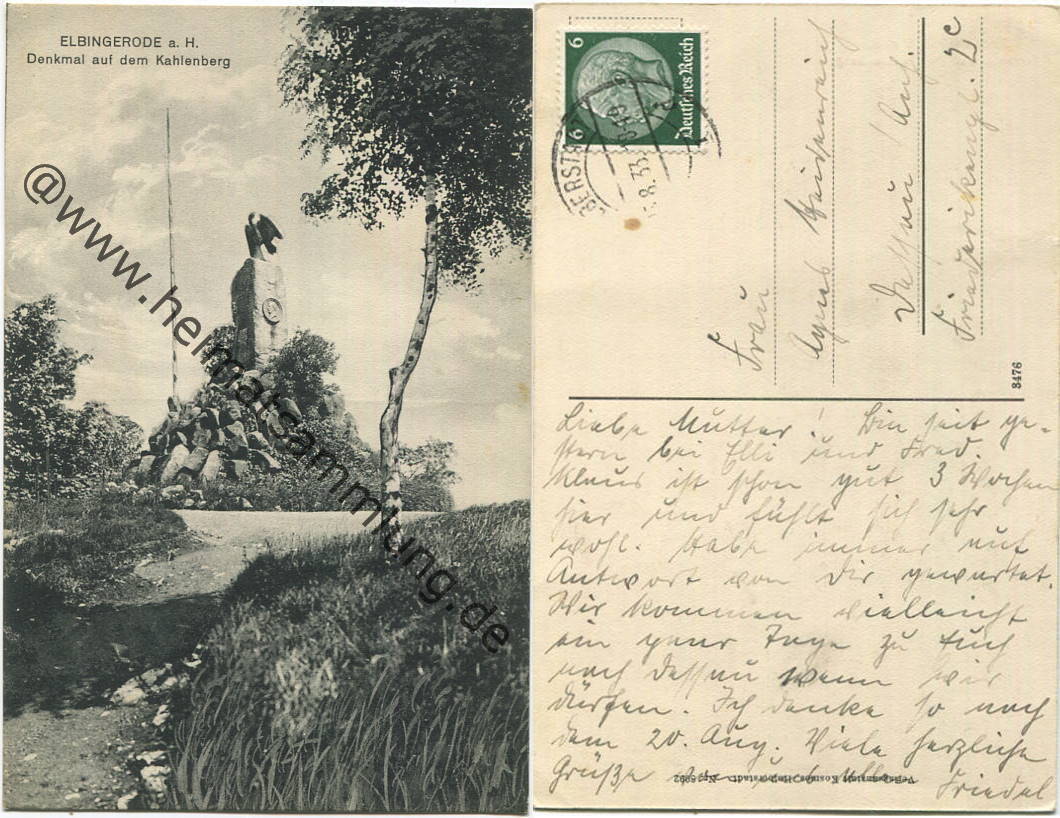 ELBINGERODE a. H.
Denkmal auf dem Kahlenberg
@www.heimatsammlung.de
6 6
Deutsches Reich
Frau
Agnes
Dessau / Anh.
Friederikenpl. 2c
3476
Liebe Mutter! Bin seit ge-
stern bei Elli und Fred.
Klaus ist schon gut 3 Wochen
hier und fühlt sich sehr
wohl. Habe immer auf
Antwort von Dir gewartet.
Wir kommen vielleicht
ein paar Tage zu Euch
nach Dessau wenn wir
dürfen. Ich denke so nach
dem 20. Aug. Viele herzliche
Grüße
Friedel
Verlagsanstalt Kosmos, Halberstadt